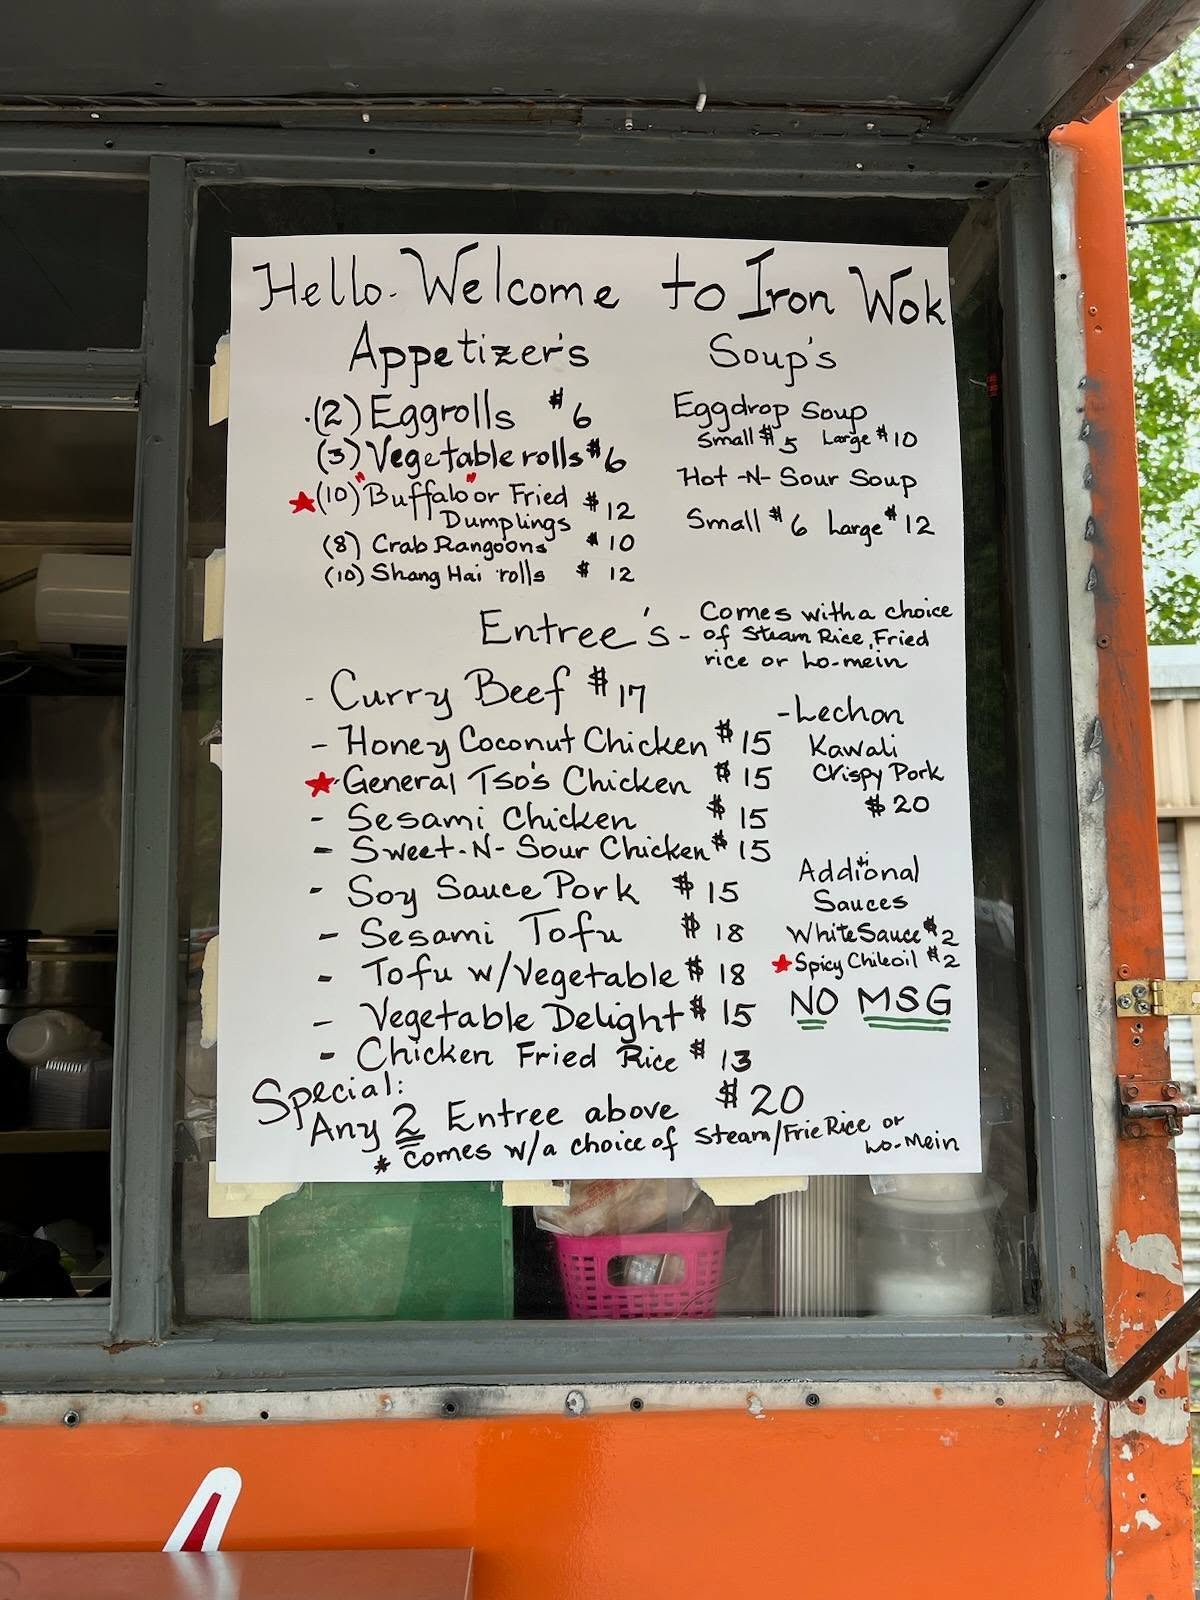 Hello. Welcome to Iron Wok
Appetizer's
.(2) Eggrolls $6
(3) Vegetable rolls $6
★(10) "Buffalo" or Fried
Dumplings $12
(8) Crab Rangoons $10
(10) Shang Hai rolls $12
Soup's
Eggdrop Soup
Small $5 Large $10
Hot -N- Sour Soup
Small $6 Large $12
Entree's - Comes with a choice
of Steam Rice, Fried
rice or Lo-mein
- Curry Beef $17
- Honey Coconut Chicken $15
★-General Tso's Chicken $15
- Sesami Chicken $15
- Sweet-N-Sour Chicken $15
- Soy Sauce Pork $15
- Sesami Tofu $18
- Tofu w/Vegetable $18
- Vegetable Delight $15
- Chicken Fried Rice $13
-Lechon
Kawali
Crispy Pork
$20
Additional
Sauces
White Sauce $2
★Spicy Chileoil $2
NO MSG
Special:
Any 2 Entree above $20
* Comes w/a choice of Steam/Frie Rice or
Lo-Mein